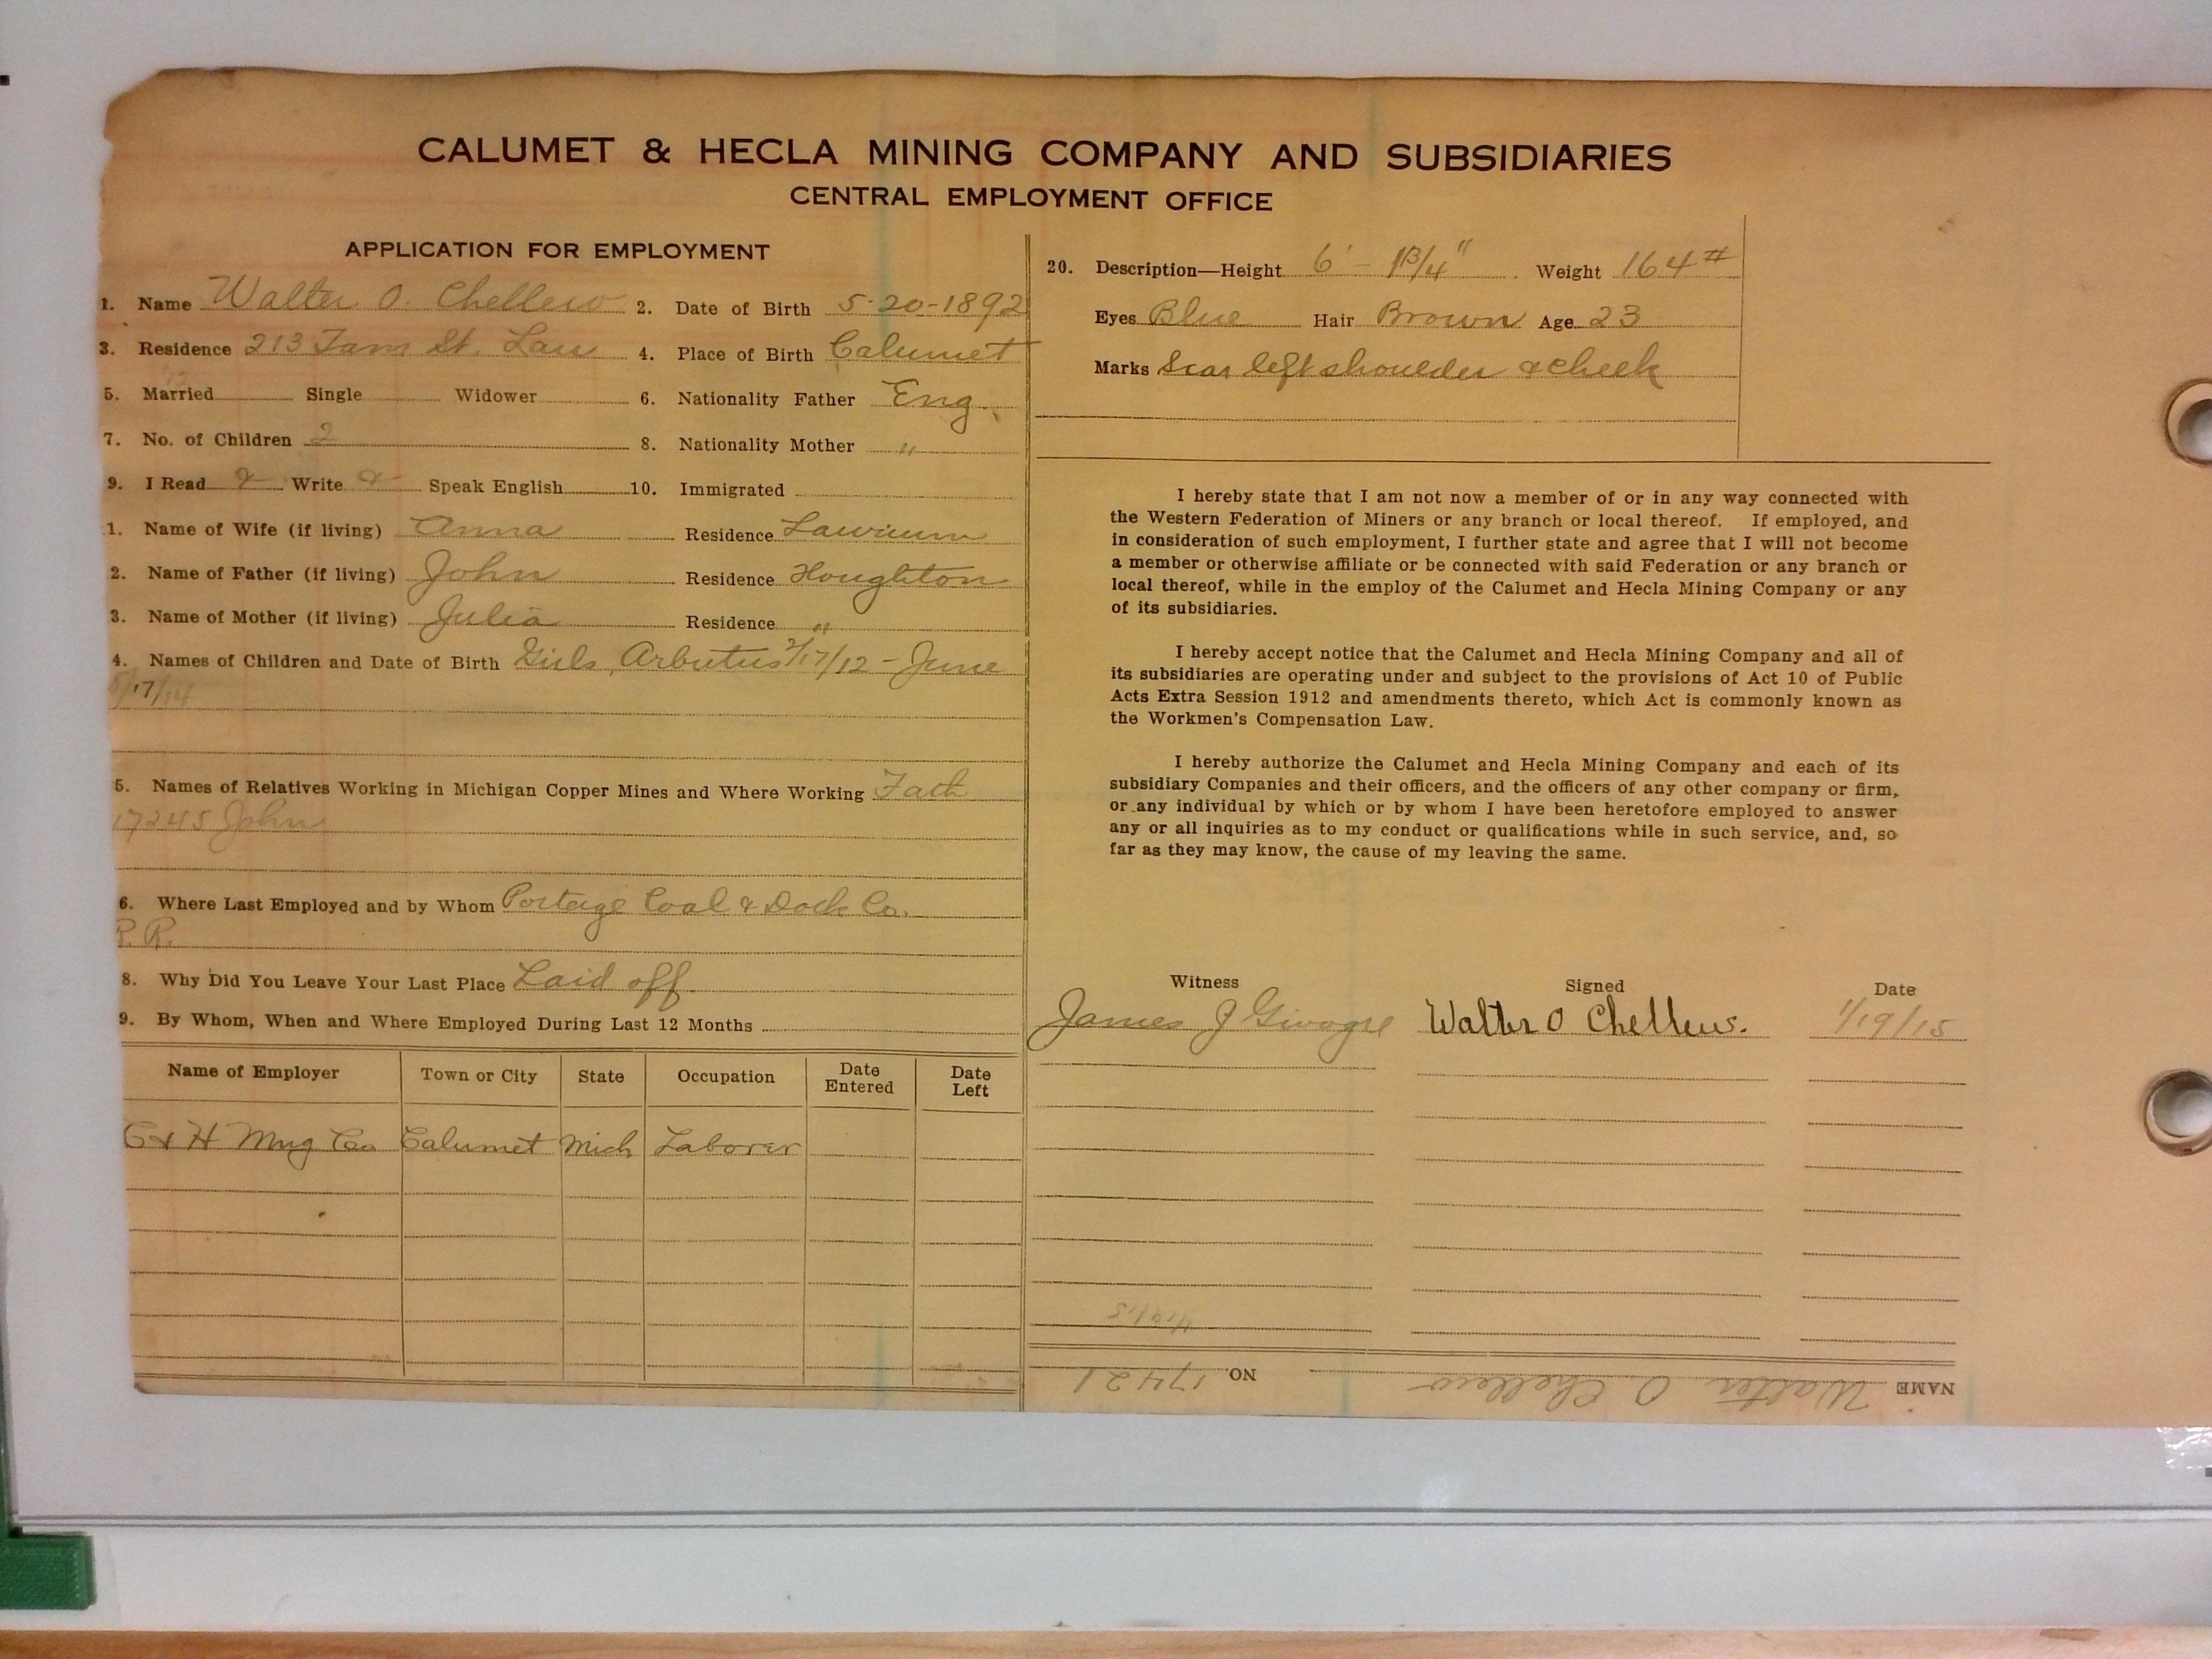 CALUMET & HECLA MINING COMPANY AND SUBSIDIARIES
CENTRAL EMPLOYMENT OFFICE
APPLICATION FOR EMPLOYMENT
1. Name Walter O. Chellew 2. Date of Birth 5-20-1892
3. Residence 213 Tam St. Lau 4. Place of Birth Calumet
5. Married Single Widower 6. Nationality Father Eng.
7. No. of Children 2 8. Nationality Mother "
9. I Read & Write & Speak English 10. Immigrated
1. Name of Wife (if living) Anna Residence Laurium
2. Name of Father (if living) John Residence Houghton
3. Name of Mother (if living) Julia Residence "
4. Names of Children and Date of Birth Girls, Arbutus /17/12 - June
/17/14
5. Names of Relatives Working in Michigan Copper Mines and Where Working Fath
17245 John
6. Where Last Employed and by Whom Portage Coal & Dock Co.
R. R.
8. Why Did You Leave Your Last Place Laid off.
9. By Whom, When and Where Employed During Last 12 Months
Name of Employer Town or City State Occupation Date Entered Date Left
C & H Mng Co Calumet Mich Laborer
20. Description—Height 6' - 1 3/4" Weight 164 #
Eyes Blue Hair Brown Age 23
Marks Scar left shoulder & cheek
I hereby state that I am not now a member of or in any way connected with
the Western Federation of Miners or any branch or local thereof. If employed, and
in consideration of such employment, I further state and agree that I will not become
a member or otherwise affiliate or be connected with said Federation or any branch or
local thereof, while in the employ of the Calumet and Hecla Mining Company or any
of its subsidiaries.
I hereby accept notice that the Calumet and Hecla Mining Company and all of
its subsidiaries are operating under and subject to the provisions of Act 10 of Public
Acts Extra Session 1912 and amendments thereto, which Act is commonly known as
the Workmen's Compensation Law.
I hereby authorize the Calumet and Hecla Mining Company and each of its
subsidiary Companies and their officers, and the officers of any other company or firm,
or any individual by which or by whom I have been heretofore employed to answer
any or all inquiries as to my conduct or qualifications while in such service, and, so
far as they may know, the cause of my leaving the same.
Witness Signed Date
James J Walter O Chellew. 1/19/15
1/19/15
NAME Walter O. Chellew NO. 17421